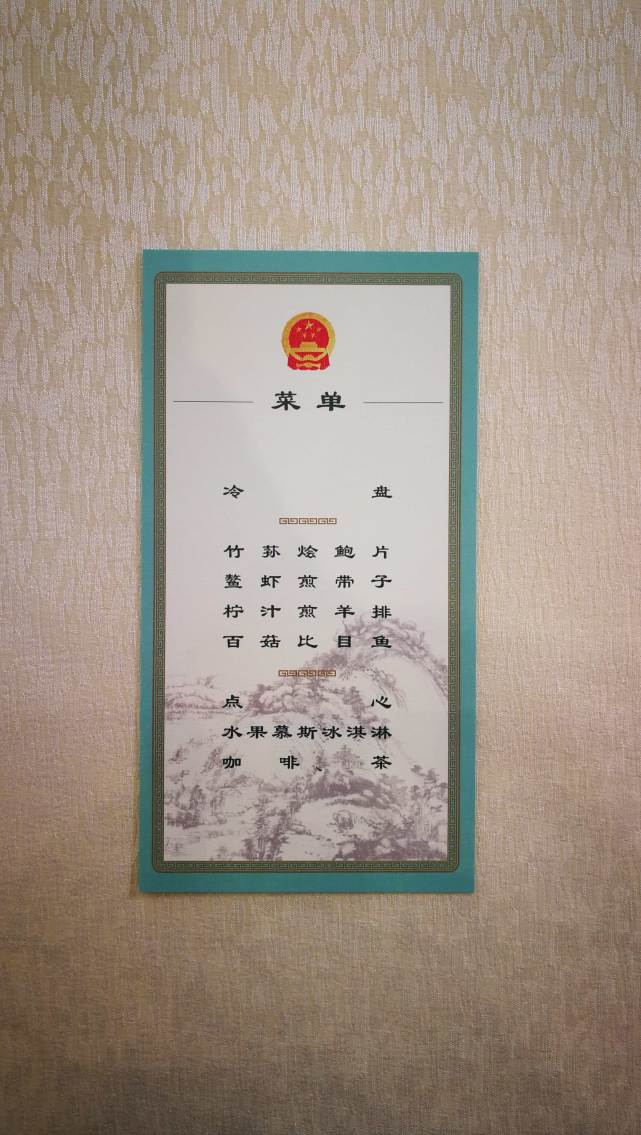 菜单
冷盘
竹荪烩鲍片
鳌虾煎带子
柠汁煎羊排
百菇比目鱼
点心
水果慕斯冰淇淋
咖啡、茶